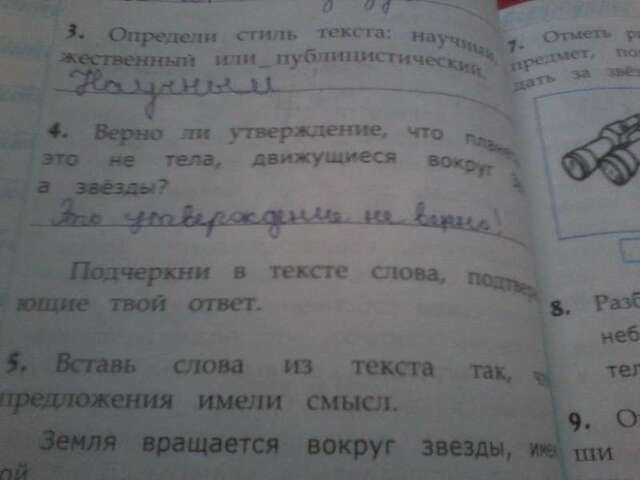 3. Определи стиль текста: научный,
жественный или публицистический.
Научный
4. Верно ли утверждение, что
это не тела, движущиеся вокруг
а звёзды?
Это утверждение не верно!
Подчеркни в тексте слова,
ющие твой ответ.
5. Вставь слова из текста так,
предложения имели смысл.
Земля вращается вокруг звезды,
ой
7. Отметь
предмет,
дать за
8.
9.
ши